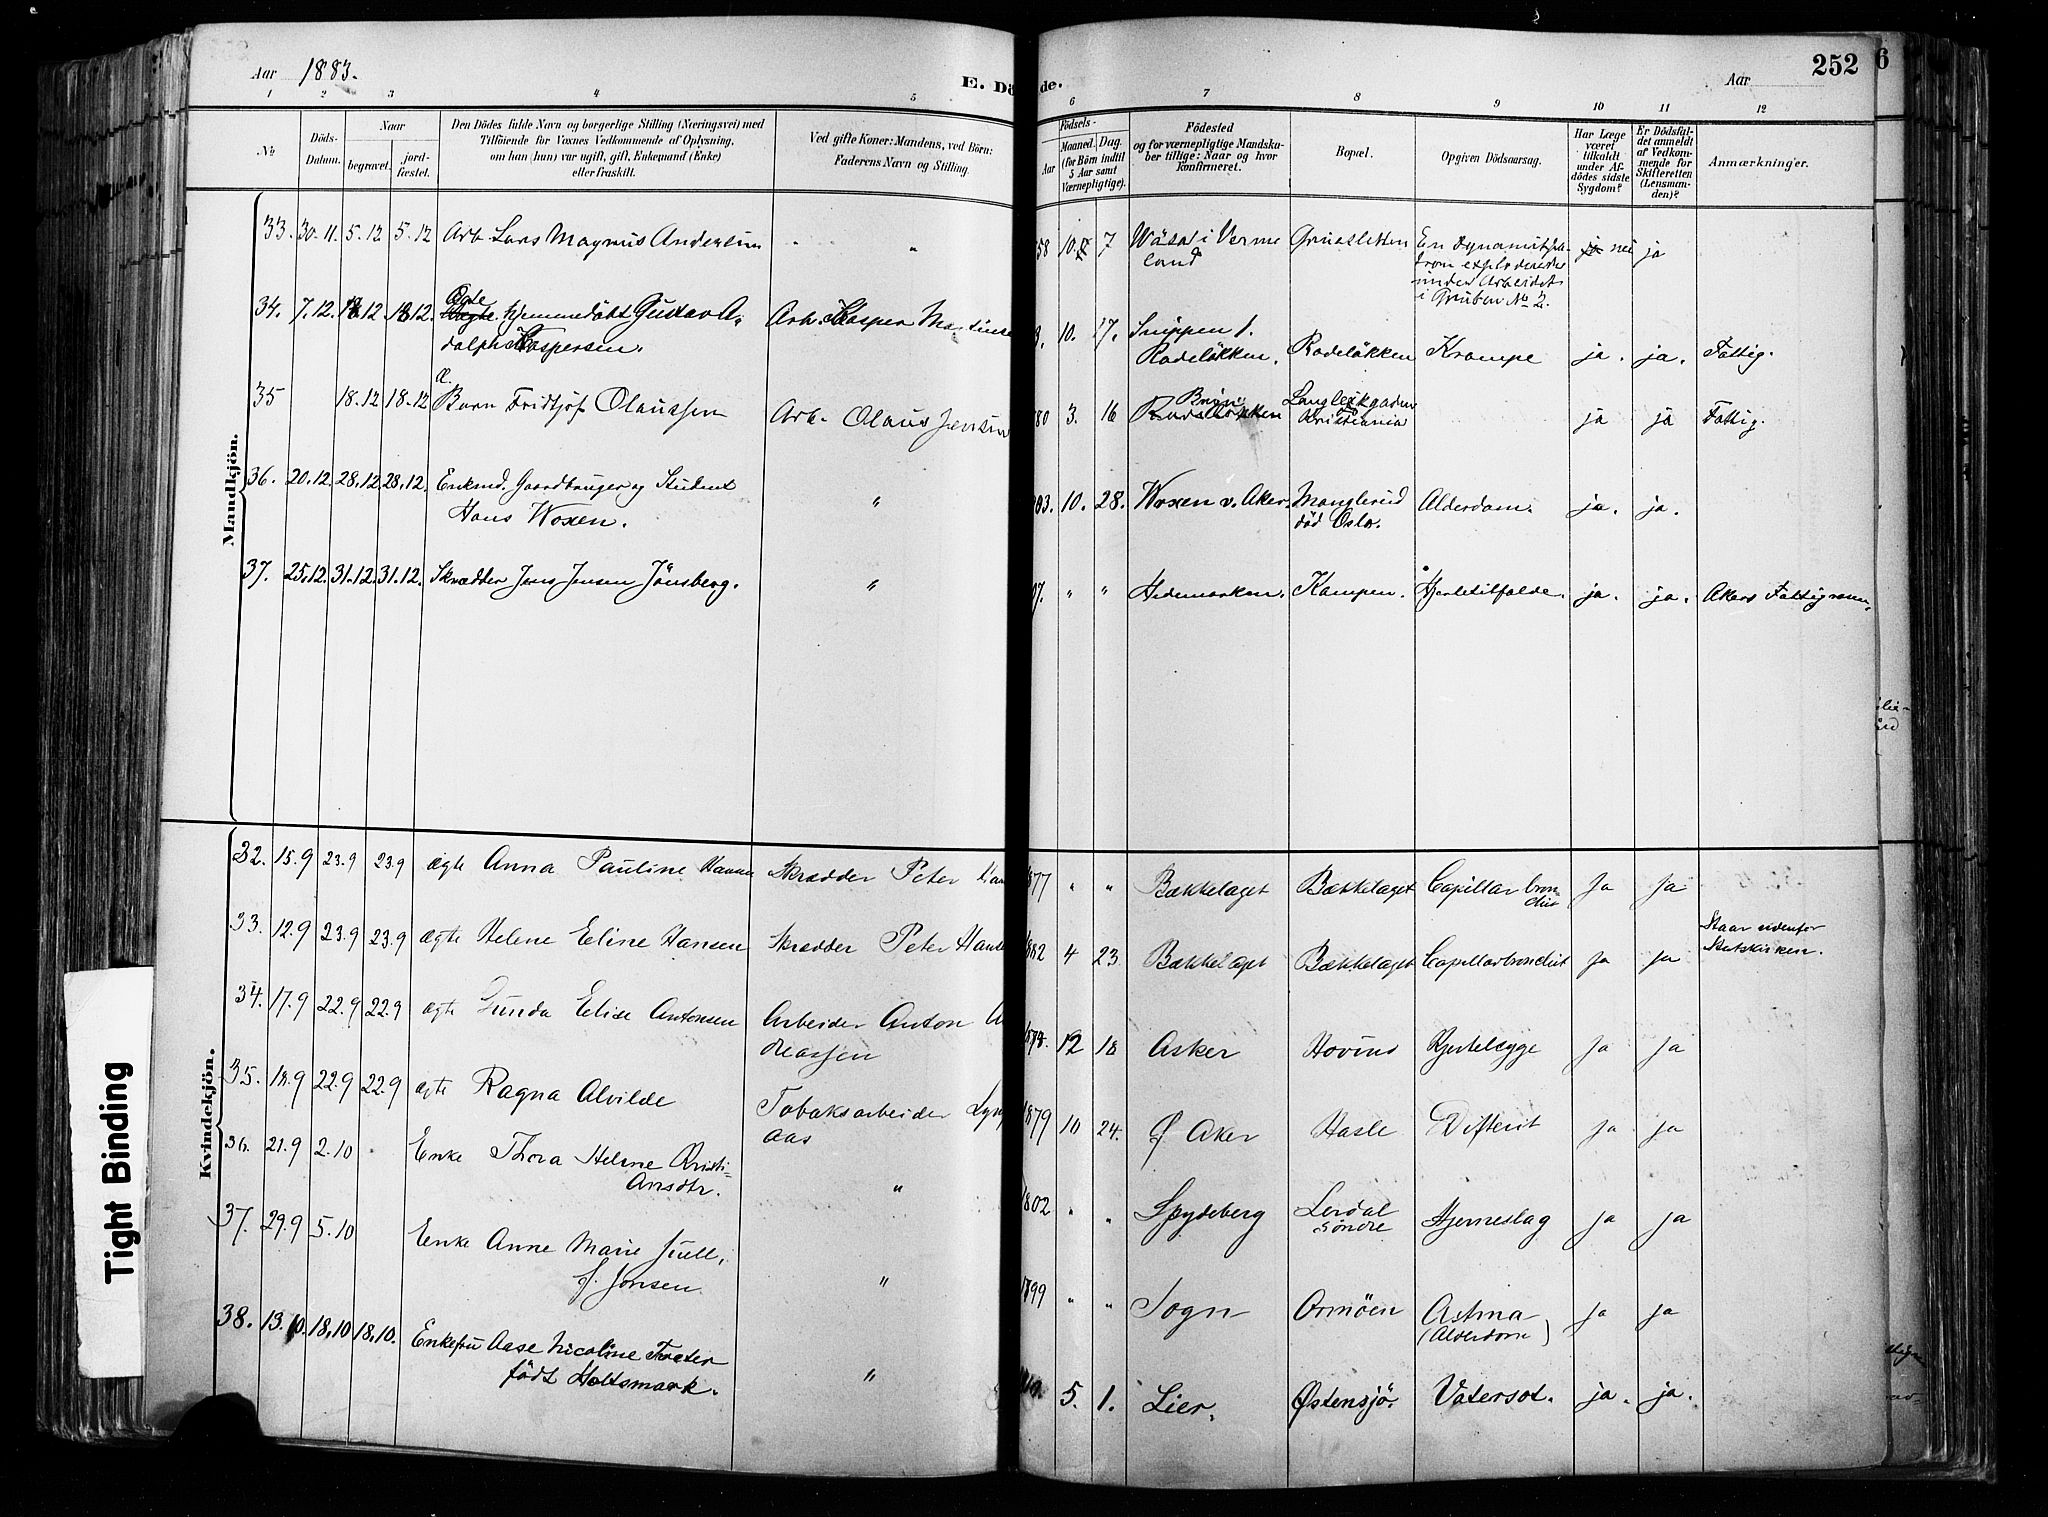 Aar 1883.
E. Dö de.
Aar
252
6
1 2 3 4 5 6 7 8 9 10 11 12
No.
Döds-Datum.
Naar
begravet.
jord-fæstet.
Den Dödes fulde Navn og borgerlige Stilling (Næringsvei) med
Tilföiende for Voxnes Vedkommende af Oplysning,
om han (hun) var ugift, gift, Enkemand (Enke)
eller fraskilt.
Ved gifte Koner: Mandens, ved Börn:
Faderens Navn og Stilling.
Födsels-
Aar
Maaned. Dag.
(for Börn indtil
5 Aar samt
Værnepligtige).
Födested
og for værnepligtige Mandska-
ber tillige: Naar og hvor
konfirmeret.
Bopæl.
Opgiven Dödsaarsag.
Har Læge
været
tilkaldt
under Af-
dödes sidste
Sygdom?
Er Dödsfal-
det anmeldt
af Vedkom-
mende for
Skifteretten
(Lensman-
den)?
Anmærkninger.
Mandkjön.
33. 30.11. 5.12 5.12 Arb. Lars Magnus Andersen " 58 10. 7 i Verme
land Grusletten En Dynamitpa-
tron exploderede
under Arbeidet
i Gruben No 2. nei ja
34. 7.12. 18.12 18.12. Ægte hjemmedöbt Gustav A-
dolph Kaspersen. Arb. Kasper 8. 10. 17. Snippen i.
Rodelökken. Rodelökken Krampe ja. ja. Fattig.
35 18.12 18.12 Æ.
Barn Fridtjof Olaussen Arb. Olaus Jensen 80 3. 16 Bryn
Rodelökken Langleikgaden
Kristiania ja ja Fattig.
36. 20.12. 28.12. 28.12. Enkmd. Gaardbruger og Student
Hans Woxen. " 03. 10. 28. Woxen v. Aker. Manglerud
död Oslo. Alderdom. ja. ja.
37. 25.12. 31.12. 31.12. Skrædder Jens Jensen Jönsberg. " 07. " " Hedemarken. Kampen. Hjertetilfælde. ja. ja. Akers Fattigvæsen.
Kvindekjön.
32. 15.9 23.9 23.9 ægte Anna Pauline Hansen Skrædder Peter Han 1877 " " Bækkelaget Bækkelaget Capillar bron
chit Ja Ja
33. 12.9 23.9 23.9 ægte Helene Eline Hansen Skrædder Peter Hanse 1882 4 23 Bækkelaget Bækkelaget Capillarbronchit Ja Ja Staar udenfor
Statskirken.
34. 17.9 22.9 22.9 ægte Gunda Elise Antonsen Arbeider Anton A
dreassen 12 18 Asker Hovind Hjertelægge Ja Ja
35. 18.9 22.9 22.9 ægte Ragna Alvilde Tobaksarbeider
Aas 1879 10 24. Ø Aker Hasle Difterit Ja Ja
36. 21.9 2.10 Enke Thora Helene Kristi-
Ansdtr. " 1802 " " Spydeberg Lerdal
söndre Hjerneslag Ja Ja
37. 29.9 5.10 Enke Anne Marie Juell,
f. Jonsen. " 1899 " " Sogn Ormöen Astma
(Alderdom) Ja Ja
38. 13.10. 18.10 18.10. Enkefru Aase Nicoline Træter
födt Holtsmark. " 5. 1. Lier. Østensjö. Vatersot. ja. ja.
Tight Binding